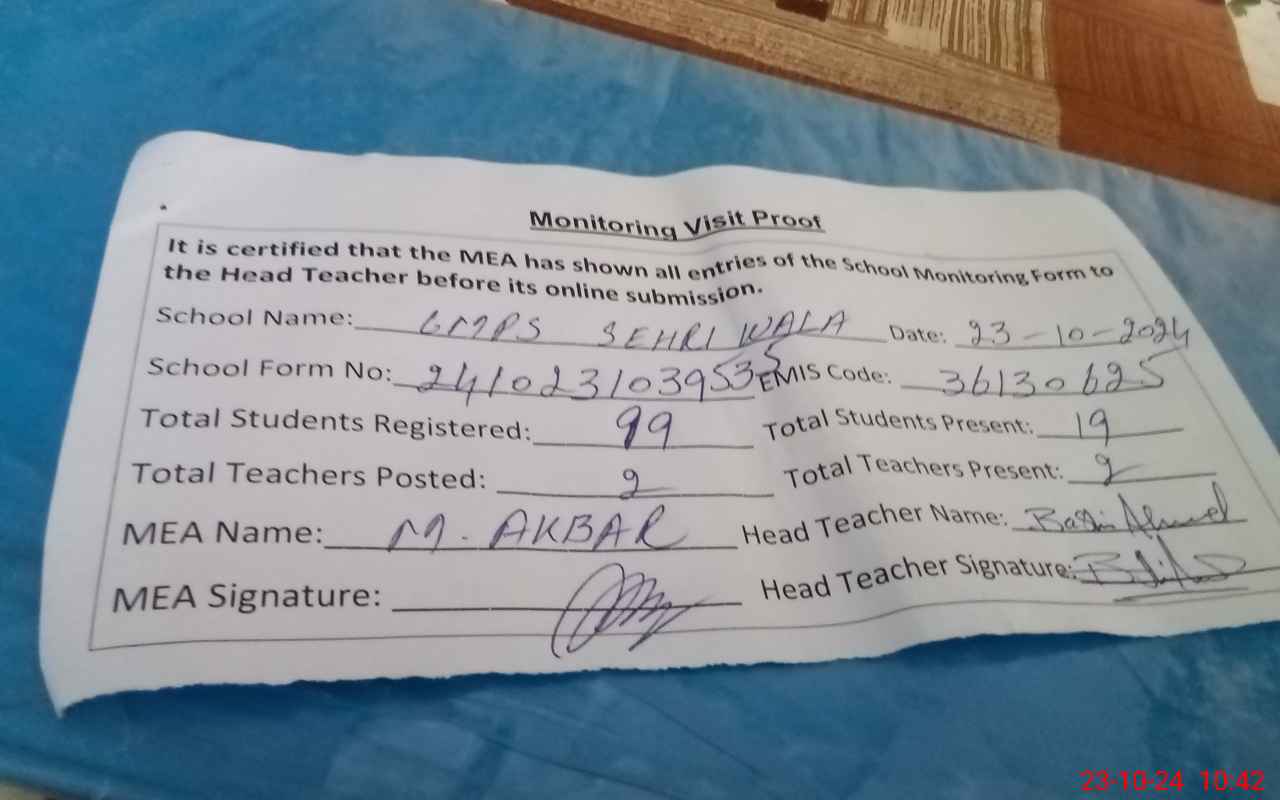 Monitoring Visit Proof
It is certified that the MEA has shown all entries of the School Monitoring Form to
the Head Teacher before its online submission.
School Name: GMPS SEHRI WALA Date: 23-10-2024
School Form No: 241023103953 5 EMIS Code: 36130625
Total Students Registered: 99 Total Students Present: 19
Total Teachers Posted: 2 Total Teachers Present: 2
MEA Name: M. AKBAR Head Teacher Name: Ahmed
MEA Signature: Head Teacher Signature:
23-10-24 10:42